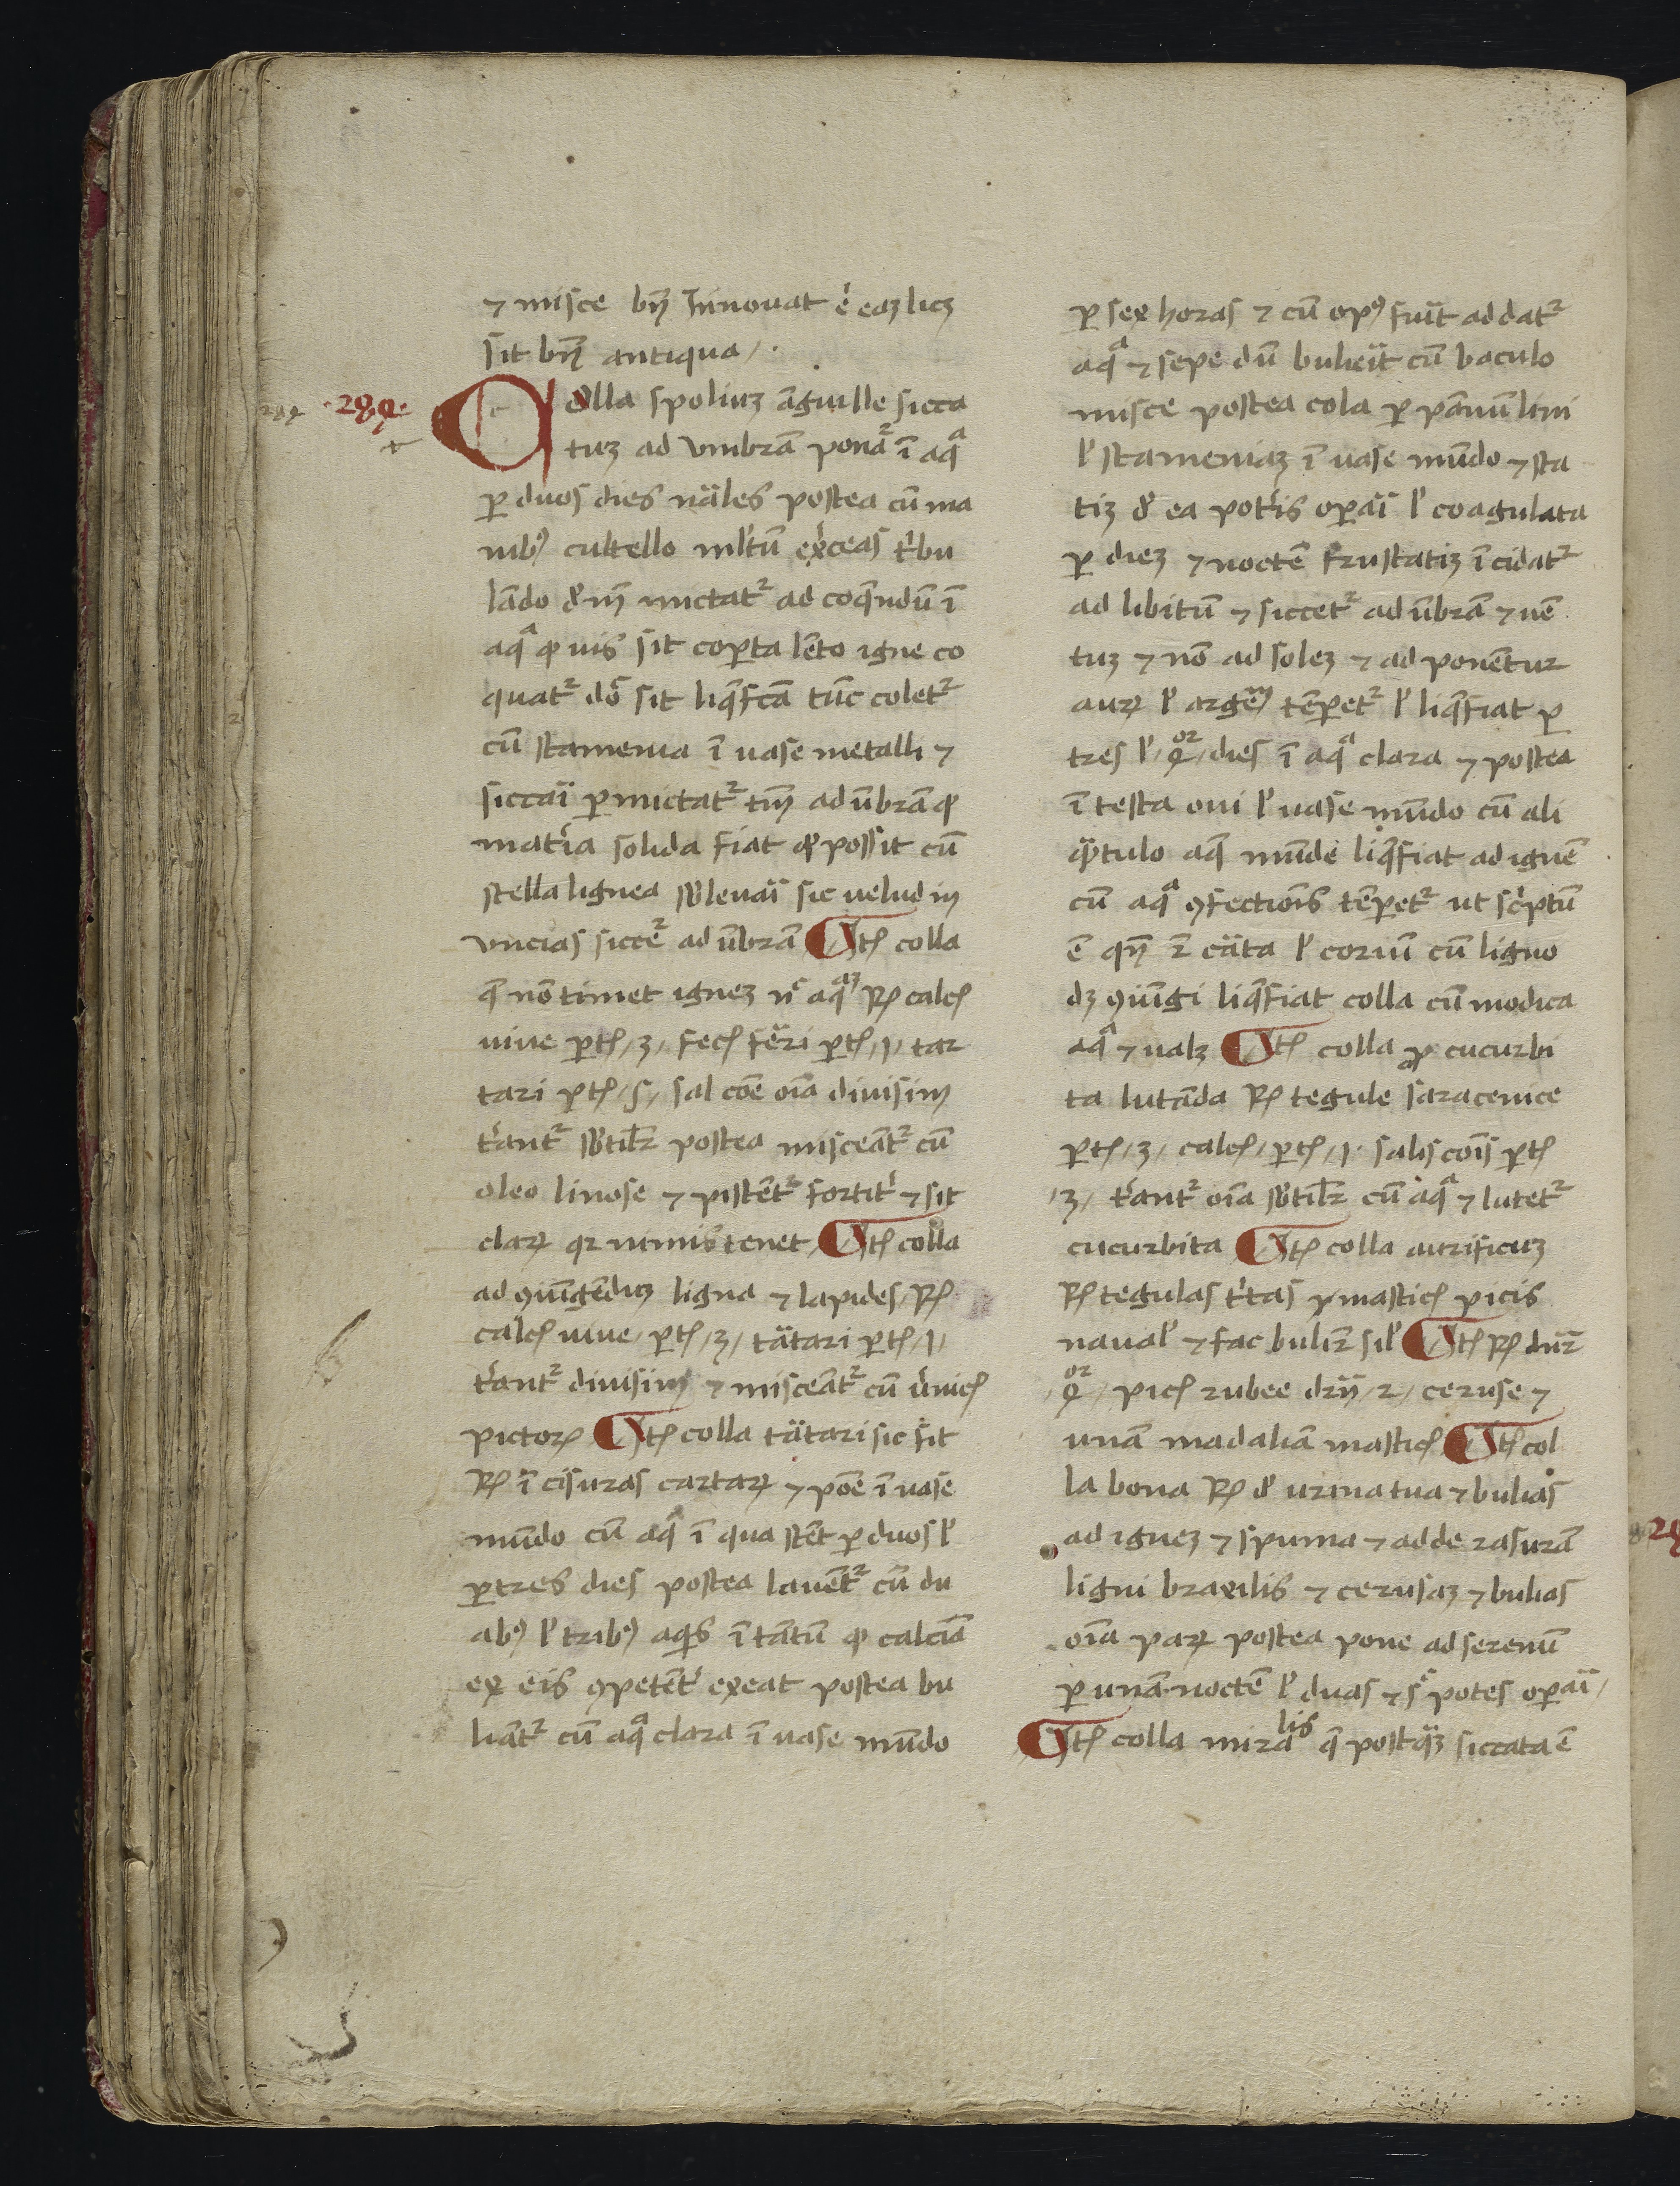 ⁊ misce bn̄ Innouat .n. eaʒ licʒ
sit bn̄ antiqua /.
·289·
Colla spoliuʒ āguille sicca
tuʒ ad vmbrā ponat᷑ ī aqª
ꝑ duos dies nāles postea cū ma
nibꝰ cultello ml̕tū exceas t̕bu
lādo d̕m̄ mictat᷑ ad coq̄ndū ī
aqª ꝙ uis sit coꝑta lēto igne co
quat᷑ dō sit liq̄fcā tūc colet᷑
cū stamenia ī uase metalli ⁊
siccāi ꝑmictat᷑ tm̄ ad ūbrā ꝙ
mat̕ia solida fiat ꝙ possit cū
stella lignea sb̕leuāi sic uelud in
vncias siccet᷑ ad ūbrā Itē colla
q̄ nō timet igneʒ nͨ aqªʒ ꝶ calcꝭ
uiue ꝑtꝭ /3/ fecꝭ fērri ꝑtꝭ /1/ tar
tari ꝑtꝭ /s/ sal cōe oīa diuisim
t̕ant᷑ sb̕tilr̄ postea misceāt᷑ cū
oleo linose ⁊ pistēt᷑ fortit̕ ⁊ sit
claꝝ qr nimis tenet / Itē colla
ad ꝯiūgēduʒ ligna ⁊ lapides / ꝶ
calcꝭ uiue / ꝑtꝭ /3/ tātari ꝑtꝭ /1/
t̕ant᷑ diuisim ⁊ misceāt᷑ cū v̕nicꝭ
pictoꝝ Itē colla tātari sic fit
ꝶ īcisuras cartaꝝ ⁊ pōe ī uase
mūdo cū aqª ī qua stēt ꝑ duos l̕
ꝑ tres dies postea lauēt᷑ cū du
abꝰ l̕ tribꝰ aqis ītātū ꝙ calcīa
ex eis ꝯpetēt̕ exeat postea bu
liāt᷑ cū aqª clara ī uase mūdo
ꝑ sex horas ⁊ cū opꝰ fuīt addat᷑
aqª ⁊ sepe dū bulieīt cū baculo
misce postea cola ꝑ pānū lini
l̕ stameniaʒ ī uase mūdo ⁊ sta
tiʒ d̕ ea pot̕is oꝑāi l̕ coagulata
ꝑ dieʒ ⁊ noctē frustatiʒ īcidat᷑
ad libitū ⁊ siccet᷑ ad ūbrā ⁊ uē
tuʒ ⁊ nō ad soleʒ ⁊ ad ponētur
auꝝ l̕ argēꝰ tēꝑet᷑ l̕ liq̄fiat ꝑ
tres l̕ /4ᵒʳ/ dies ī aqª clara ⁊ postea
ī testa oui l̕ uase mūdo cū ali
qªtulo aq̄ mūde liq̄fiat ad ignē
cū aqª ꝯfectiōis tēꝑet᷑ ut sc̕ptū
ē qn̄ .n. cāta l̕ coriū cū ligno
dʒ ꝯiūgi liq̄fiat colla cū modica
aqª ⁊ ualʒ Itē colla ꝓ cucurbi
ta lutanda ꝶ tegule saracenice
ꝑtꝭ /3/ calcꝭ / ꝑtꝭ /1· salis cōis ꝑtꝭ
/3/ t̕ant᷑ oīa sb̕tilr̄ cū aqª ⁊ lutet᷑
cucurbita Itē colla aurificuʒ
ꝶ tegulas t̕tas ⁊ masticꝭ picis
naual̕ ⁊ fac bulir̄ sil̕ Itē ꝶ dūr̄
/4ᵒʳ/ picꝭ rubee drn̄ /2/ ceruse ⁊
unā madaliā masticꝭ Itē col
la bona ꝶ d̕ urina tua ⁊ bulias
ad igneʒ ⁊ spuma ⁊ adde rasurā
ligni braxilis ⁊ cerusaʒ ⁊ bulias
oīa paꝝ postea pone ad serenū
ꝑ unā noctē l̕ duas ⁊ sͨ potes oꝑāi /
Itē colla mirabˡⁱˢ q̄ postqªʒ siccata ē